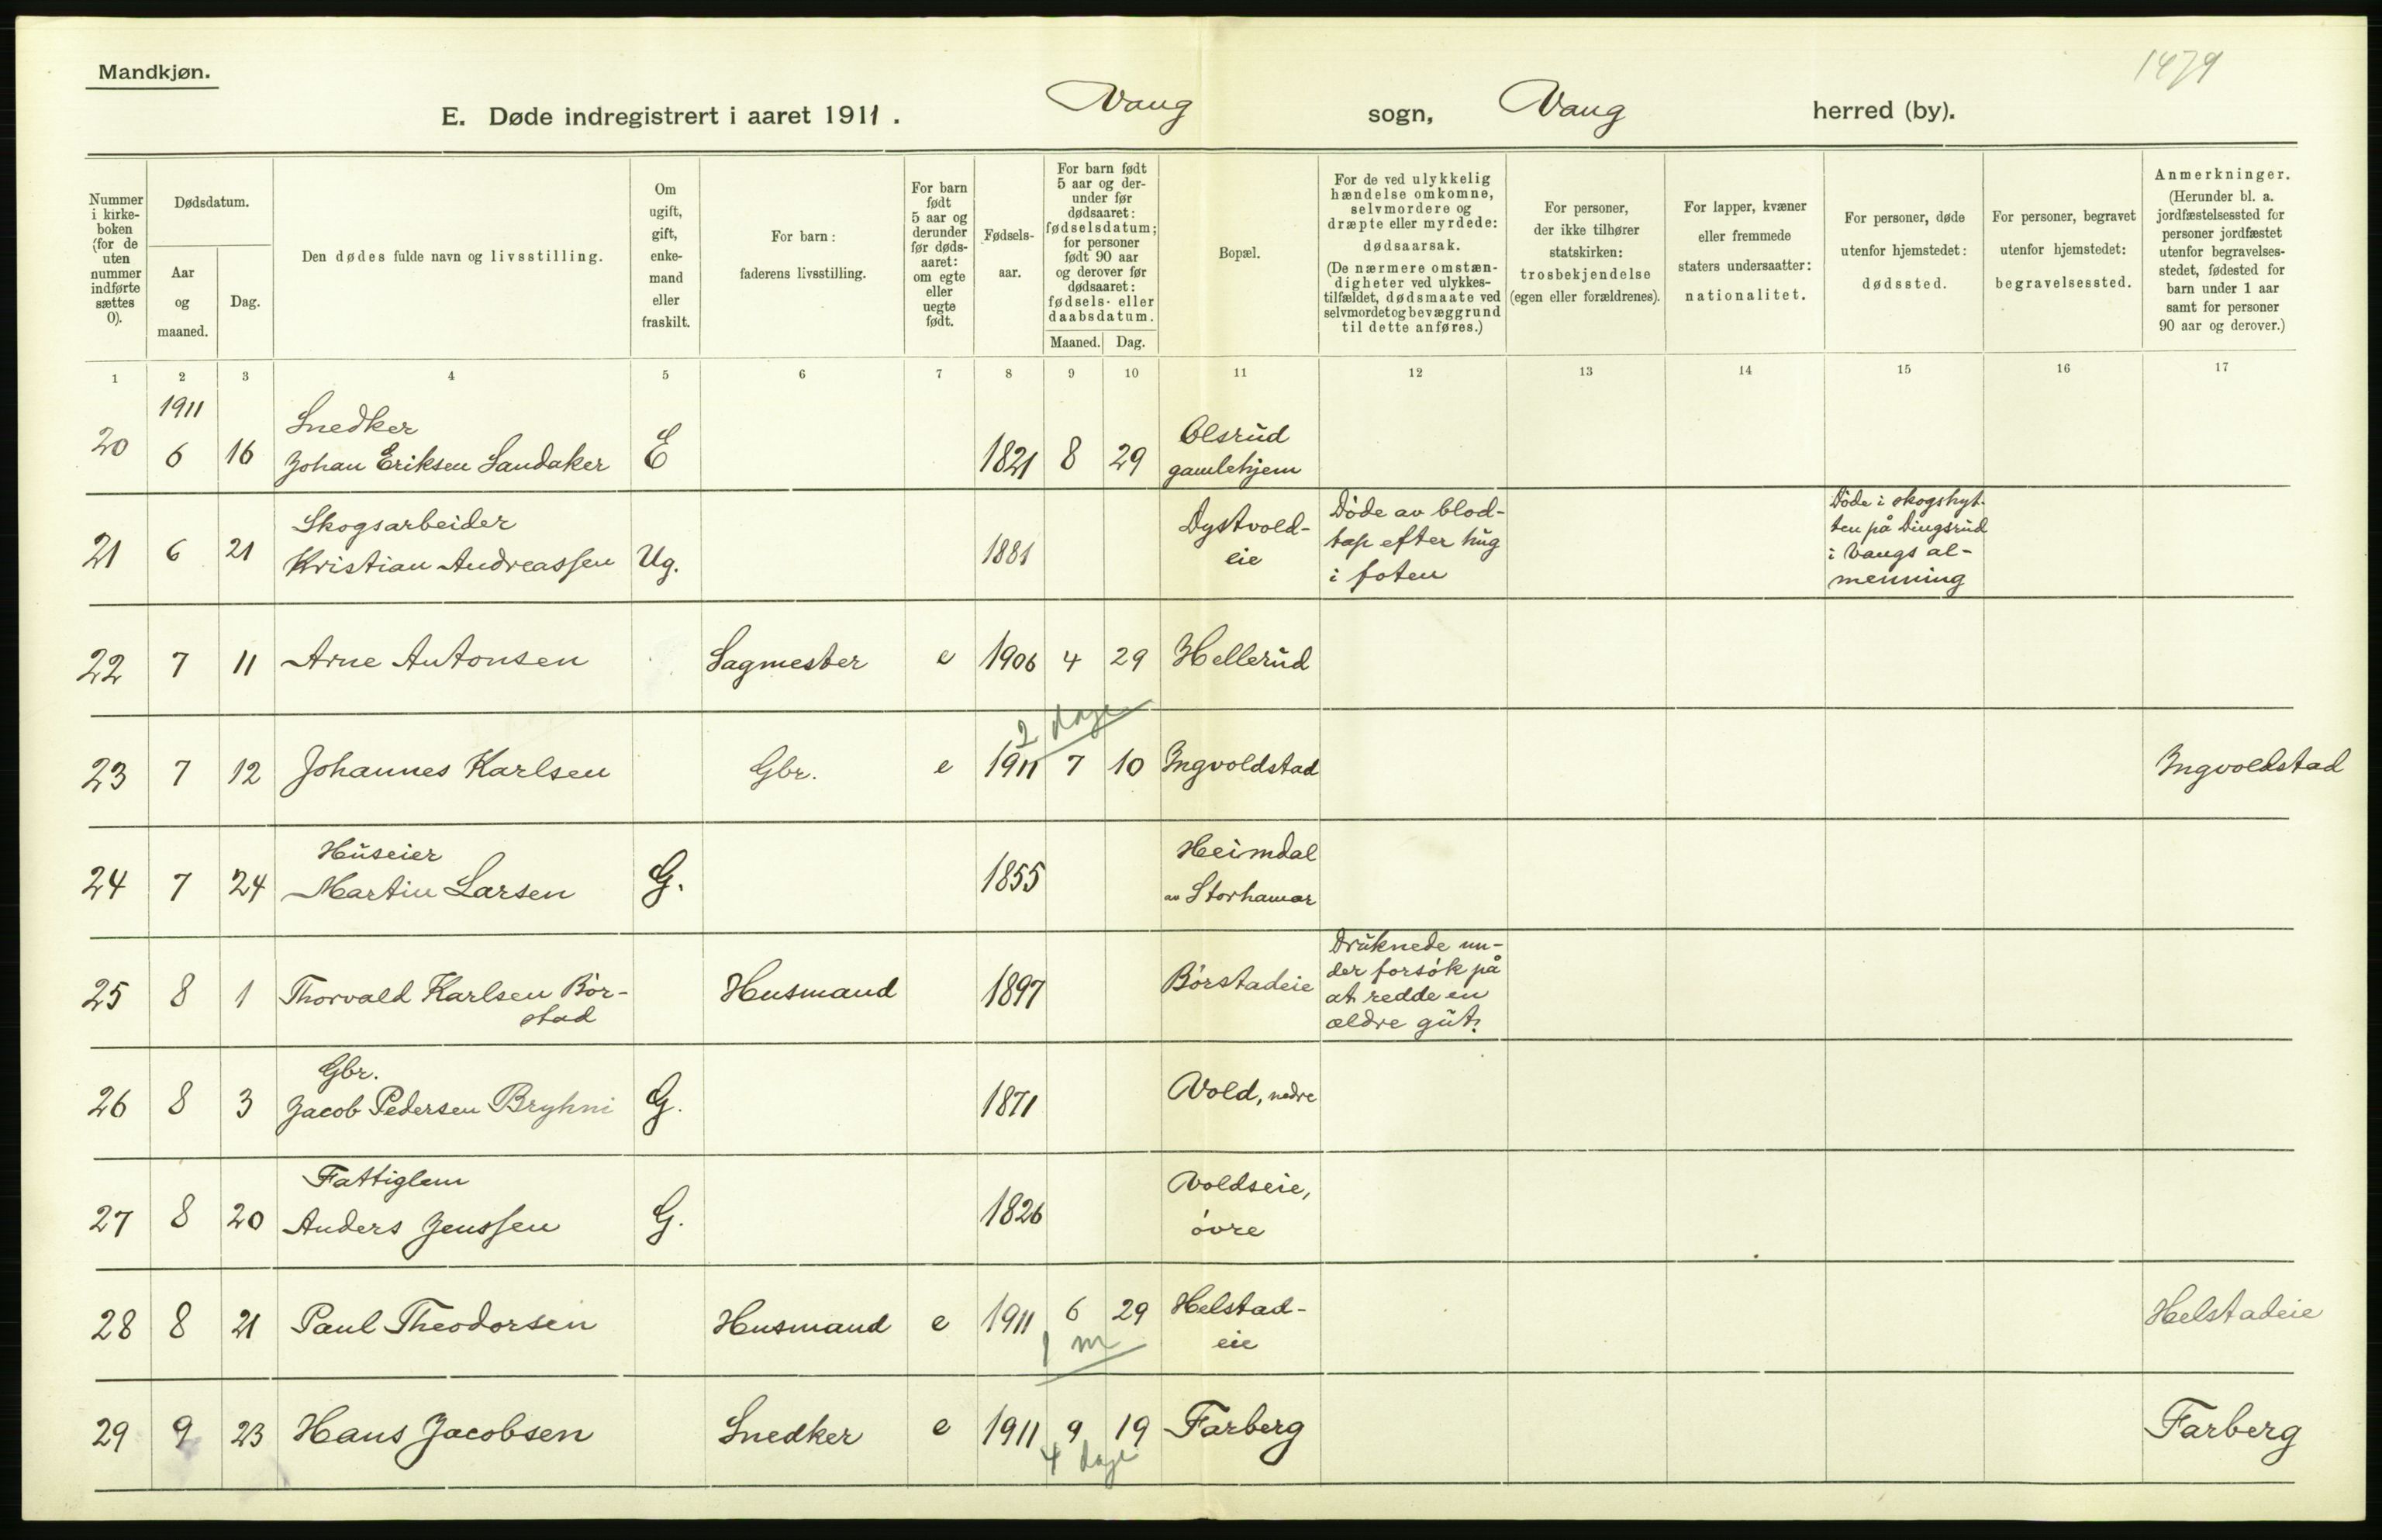 Mandkjøn.
1479
E. Døde indregistrert i aaret 1911. Vang sogn, Vang herred (by).
Nummer i kirke-boken (for de uten nummer indførte sættes 0).
Dødsdatum.
Aar og maaned.
Dag.
Den dødes fulde navn og livsstilling.
Om ugift, gift, enke-mand eller fraskilt.
For barn: faderens livsstilling.
For barn født 5 aar og derunder før døds-aaret: om egte eller uegte født.
Fødsels-aar.
For barn født 5 aar og der-under før dødsaaret: fødselsdatum; for personer født 90 aar og derover før dødsaaret: fødsels- eller daabsdatum.
Maaned. Dag.
Bopæl.
For de ved ulykkelig hændelse omkomne, selvmordere og dræpte eller myrdede: dødsaarsak. (De nærmere omstæn-digheter ved ulykkes-tilfældet, dødsmaate ved selvmordet og bevæggrund til dette anføres.)
For personer, der ikke tilhører statskirken: trosbekjendelse (egen eller forældrenes).
For lapper, kvæner eller fremmede staters undersaatter: nationalitet.
For personer, døde utenfor hjemstedet: dødssted.
For personer, begravet utenfor hjemstedet: begravelsessted.
Anmerkninger. (Herunder bl. a. jordfæstelsessted for personer jordfæstet utenfor begravelses-stedet, fødested for barn under 1 aar samt for personer 90 aar og derover.)
1 2 3 4 5 6 7 8 9 10 11 12 13 14 15 16 17
1911
20 6 16 Snedker Johan Eriksen Sandaker E 1821 8 29 Olsrud gamlehjem
21 6 21 Skogsarbeider Kristian Andreassen Ug. 1881 Dystvold-eie Døde av blod-tap efter hug i foten Døde i skogshyt-ten på Dingsrud i Vangs al-menning
22 7 11 Arne Antonsen Sagmester e 1906 4 29 Hellerud
2 dage
23 7 12 Johannes Karlsen Gbr. e 1911 7 10 Ingvoldstad Ingvoldstad
24 7 24 Huseier Martin Larsen G. 1855 Heimdal av Storhamar
25 8 1 Thorvald Karlsen Bør-stad Husmand 1897 Børstadeie Druknede un-der forsøk på at redde en ældre gut.
26 8 3 Gbr. Jacob Pedersen Bryhni G. 1871 Vold, nedre
27 8 20 Fattiglem Anders Jenssen G. 1826 Voldseie, øvre
28 8 21 Paul Theodorsen Husmand e 1911 6 29 Helstad-eie Helstadeie
1 m
29 9 23 Hans Jacobsen Snedker e 1911 9 19 Farberg Farberg
4 dage